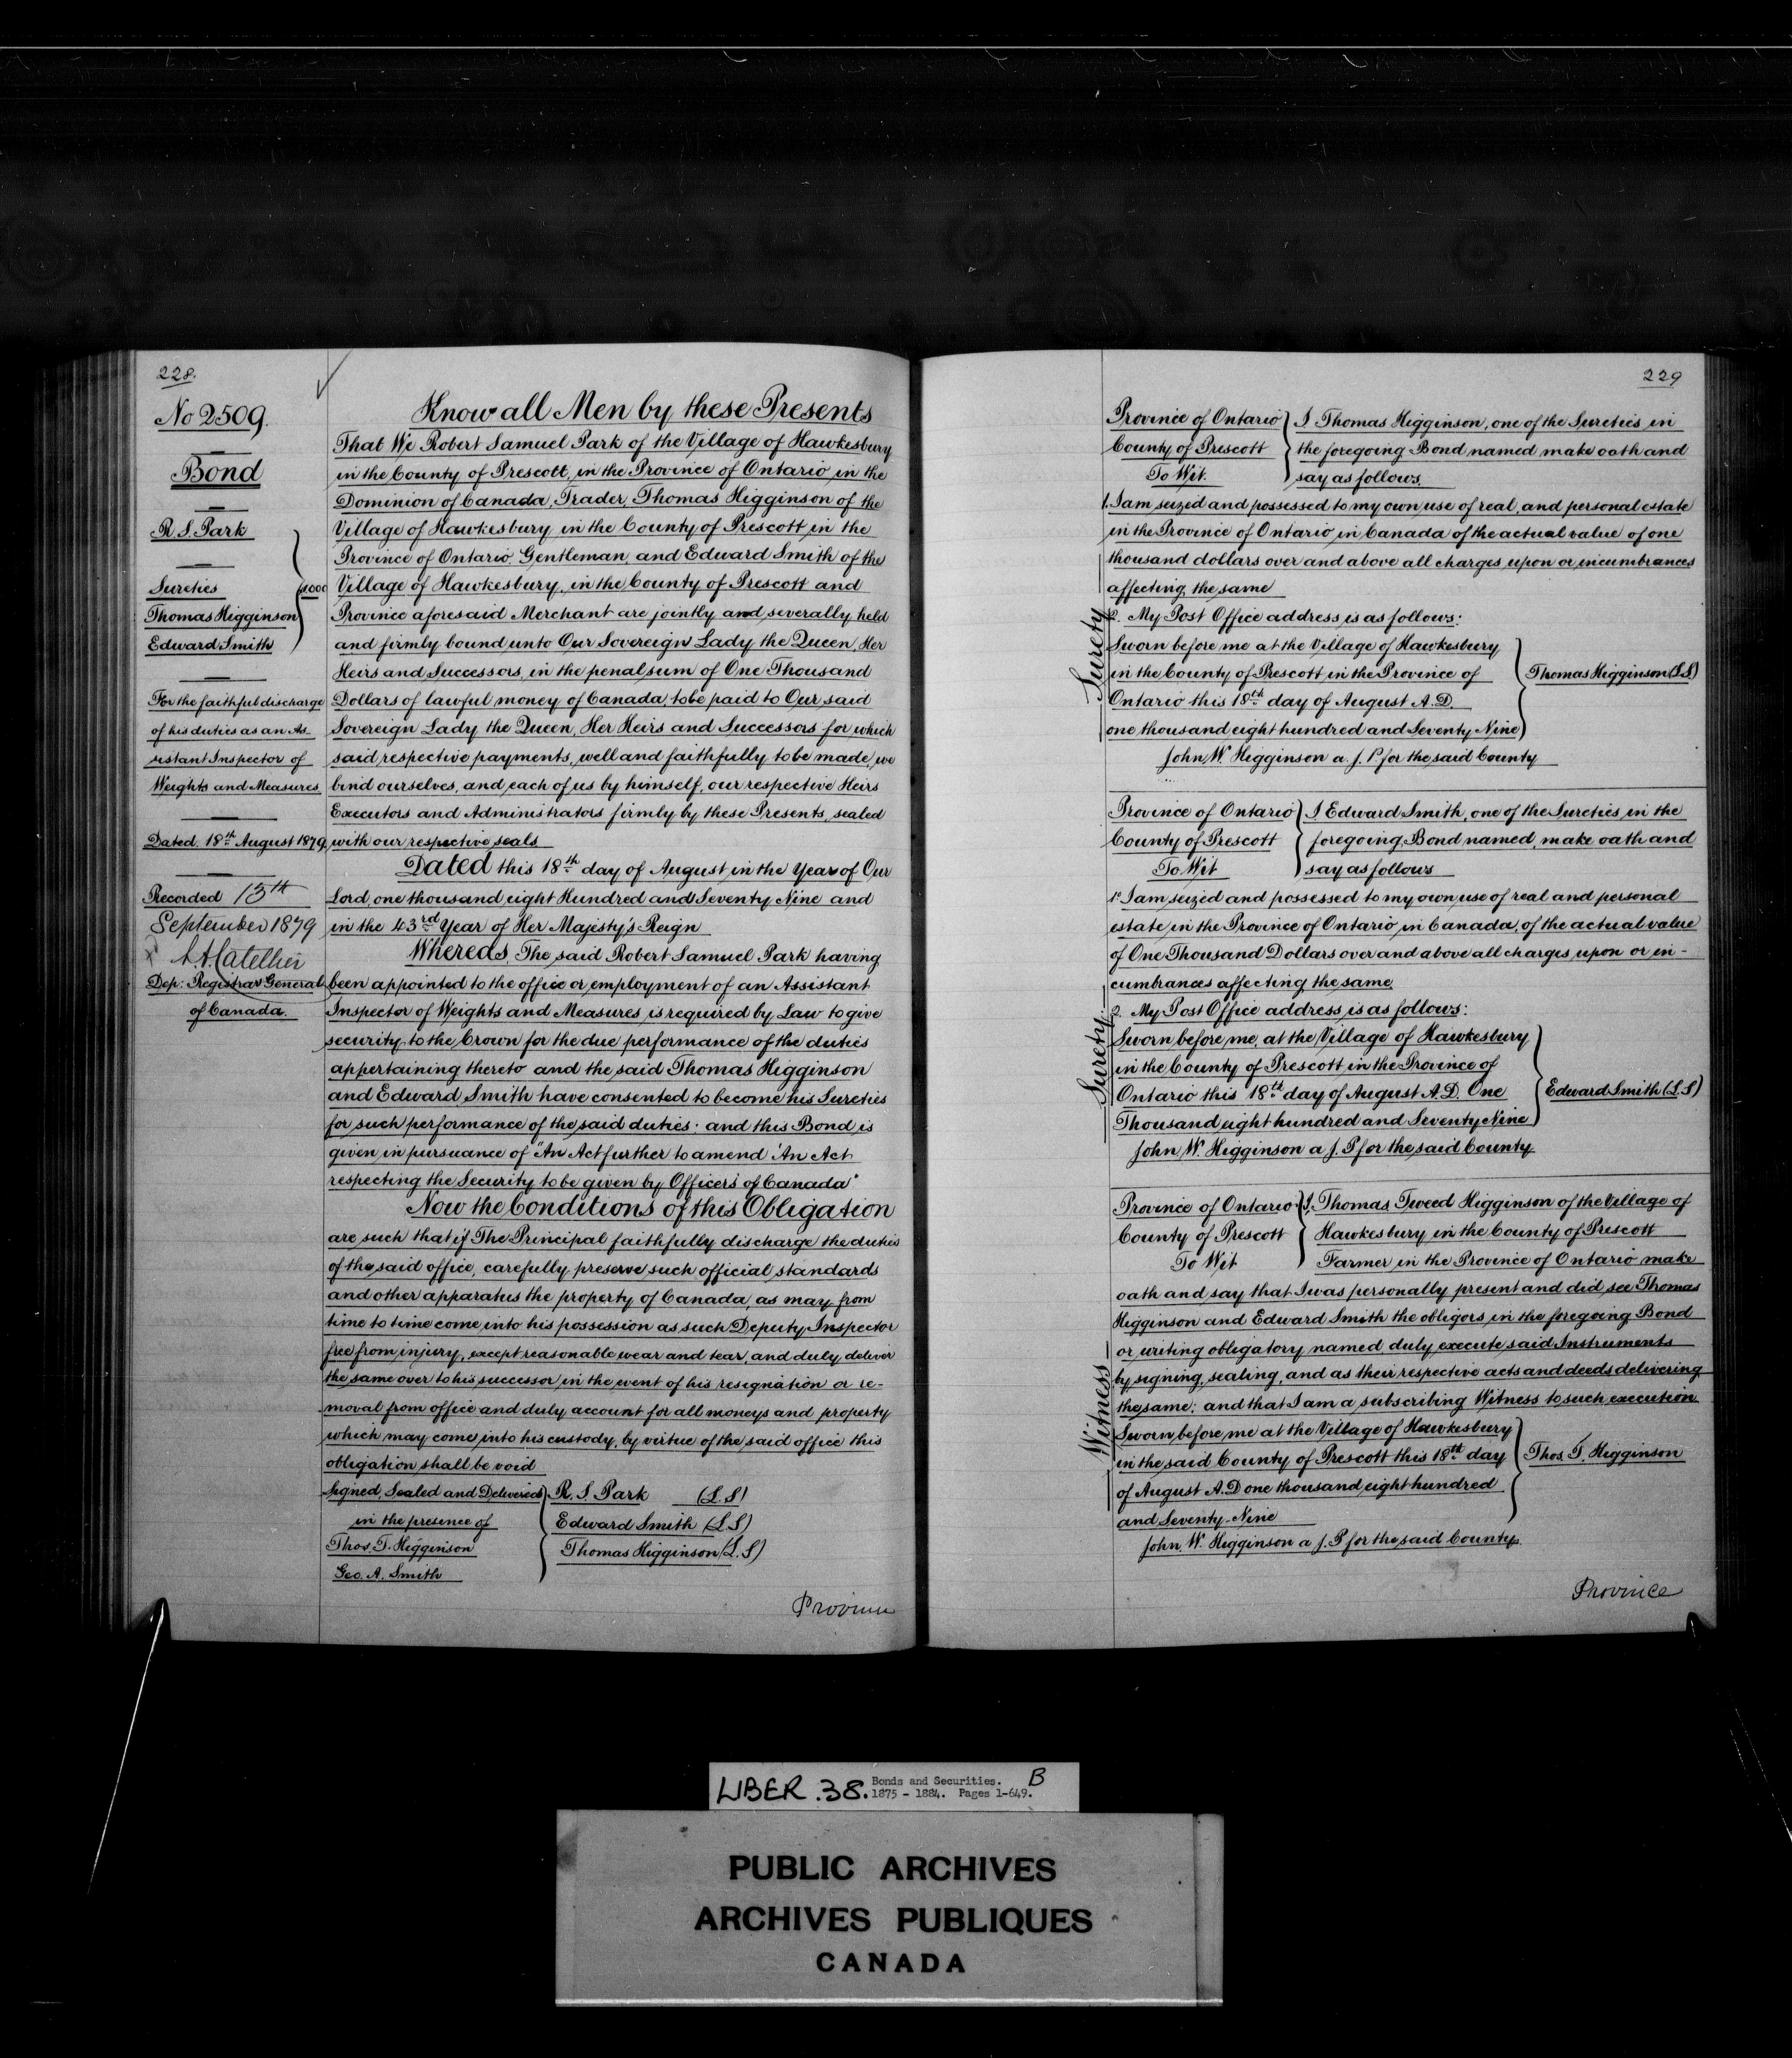 228.
No 2509.
Bond
R. S. Park
Sureties
$1000
Thomas Higginson
Edward Smith
For the faithful discharge
of his duties as an As-
sistant Inspector of
Weights and Measures
Dated. 18th August 1879
Recorded 15th
September 1879
Dep: Registrar General
of Canada.
Know all Men by these Presents
That We Robert Samuel Park of the Village of Hawkesbury
in the County of Prescott, in the Province of Ontario in the
Dominion of Canada, Trader, Thomas Higginson of the
Village of Hawkesbury in the County of Prescott in the
Province of Ontario, Gentleman, and Edward Smith of the
Village of Hawkesbury, in the County of Prescott and
Province aforesaid Merchant are jointly and severally held
and firmly bound unto Our Sovereign Lady the Queen, Her
Heirs and Successors, in the penal sum of One Thousand
Dollars of lawful money of Canada, to be paid to Our said
Sovereign Lady the Queen, Her Heirs and Successors for which
said respective payments, well and faithfully to be made, we
bind ourselves, and each of us by himself, our respective Heirs
Executors and Administrators firmly by these Presents, sealed
with our respective seals
Dated this 18th day of August in the Year of Our
Lord, one thousand, eight Hundred and Seventy Nine and
in the 43rd Year of Her Majesty's Reign
Whereas, The said Robert Samuel Park having
been appointed to the office or employment of an Assistant
Inspector of Weights and Measures is required by Law to give
security to the Crown for the due performance of the duties
appertaining thereto and the said Thomas Higginson
and Edward Smith have consented to become his Sureties
for such performance of the said duties; and this Bond is
given in pursuance of "An Act further to amend 'An Act
respecting the Security to be given by Officers of Canada"
Now the Conditions of this Obligation
are such that if The Principal faithfully discharge the duties
of the said office, carefully preserve such official standards
and other apparatus the property of Canada, as may from
time to time come into his possession as such Deputy Inspector
free from injury, except reasonable wear and tear, and duly deliver
the same over to his successor in the event of his resignation or re-
moval from office and duly account for all moneys and property
which may come into his custody, by virtue of the said office this
obligation shall be void
Signed, Sealed and Delivered
in the presence of
Thos. T. Higginson
Geo. A. Smith
R. S. Park (L.S)
Edward Smith (L.S)
Thomas Higginson (L.S)
Province
229
Province of Ontario
County of Prescott
To Wit.
I Thomas Higginson, one of the Sureties in
the foregoing Bond named make oath and
say as follows.
1. I am seized and possessed to my own use of real and personal estate
in the Province of Ontario, in Canada of the actual value of one
thousand dollars over and above all charges upon or incumbrances
affecting the same
2. My Post Office address is as follows:
Surety
Sworn before me at the Village of Hawkesbury
in the County of Prescott in the Province of
Ontario this 18th day of August A.D.
one thousand eight hundred and Seventy Nine
Thomas Higginson (L.S)
John W. Higginson a. J. P. for the said County
Province of Ontario
County of Prescott
To Wit
I Edward Smith, one of the Sureties in the
foregoing Bond named, make oath and
say as follows
1o I am seized and possessed to my own use of real and personal
estate in the Province of Ontario in Canada, of the actual value
of One Thousand Dollars over and above all charges, upon or in-
cumbrances affecting the same
2. My Post Office address is as follows:
Surety
Sworn before me, at the Village of Hawkesbury
in the County of Prescott in the Province of
Ontario this 18th day of August A.D. One
Thousand eight hundred and Seventy Nine
Edward Smith (L.S)
John W. Higginson a J. P for the said County
Province of Ontario
County of Prescott
To Wit
I, Thomas Tweed Higginson of the Village of
Hawkesbury in the County of Prescott
Farmer in the Province of Ontario make
oath and say that I was personally present and did see Thomas
Higginson and Edward Smith the obligors in the foregoing Bond
or writing obligatory named duly execute said Instruments
by signing, sealing, and as their respective acts and deeds delivering
the same; and that I am a subscribing Witness to such execution
Witness
Sworn before me at the Village of Hawkesbury
in the said County of Prescott this 18th day
of August A.D one thousand eight hundred
and Seventy-Nine
Thos. T. Higginson
John W. Higginson a J. P for the said County
Province
LIBER .38. Bonds and Securities. B
1875 - 1884. Pages 1-649.
PUBLIC ARCHIVES
ARCHIVES PUBLIQUES
CANADA